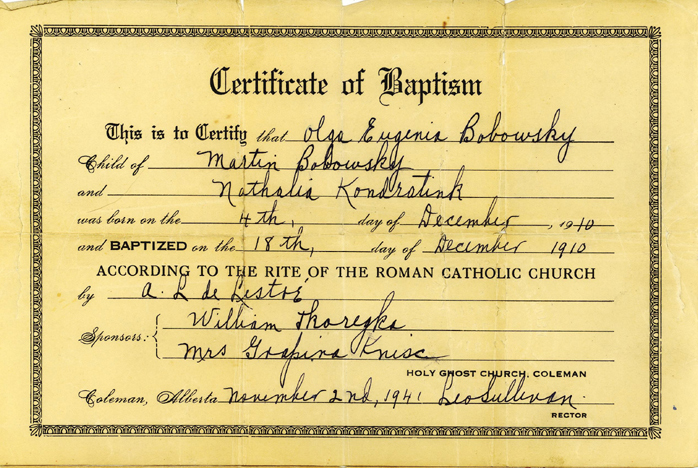 Certificate of Baptism
This is to Certify that Olga Eugenia Bobowsky
Child of Martin Bobowsky
and Nathalia Kondratink
was born on the 4th, day of December, 1910
and BAPTIZED on the 18th, day of December 1910
ACCORDING TO THE RITE OF THE ROMAN CATHOLIC CHURCH
by A. L de
Sponsors: William
Mrs
HOLY GHOST CHURCH, COLEMAN
Coleman, Alberta November 2nd, 1941 Leo Sullivan.
RECTOR